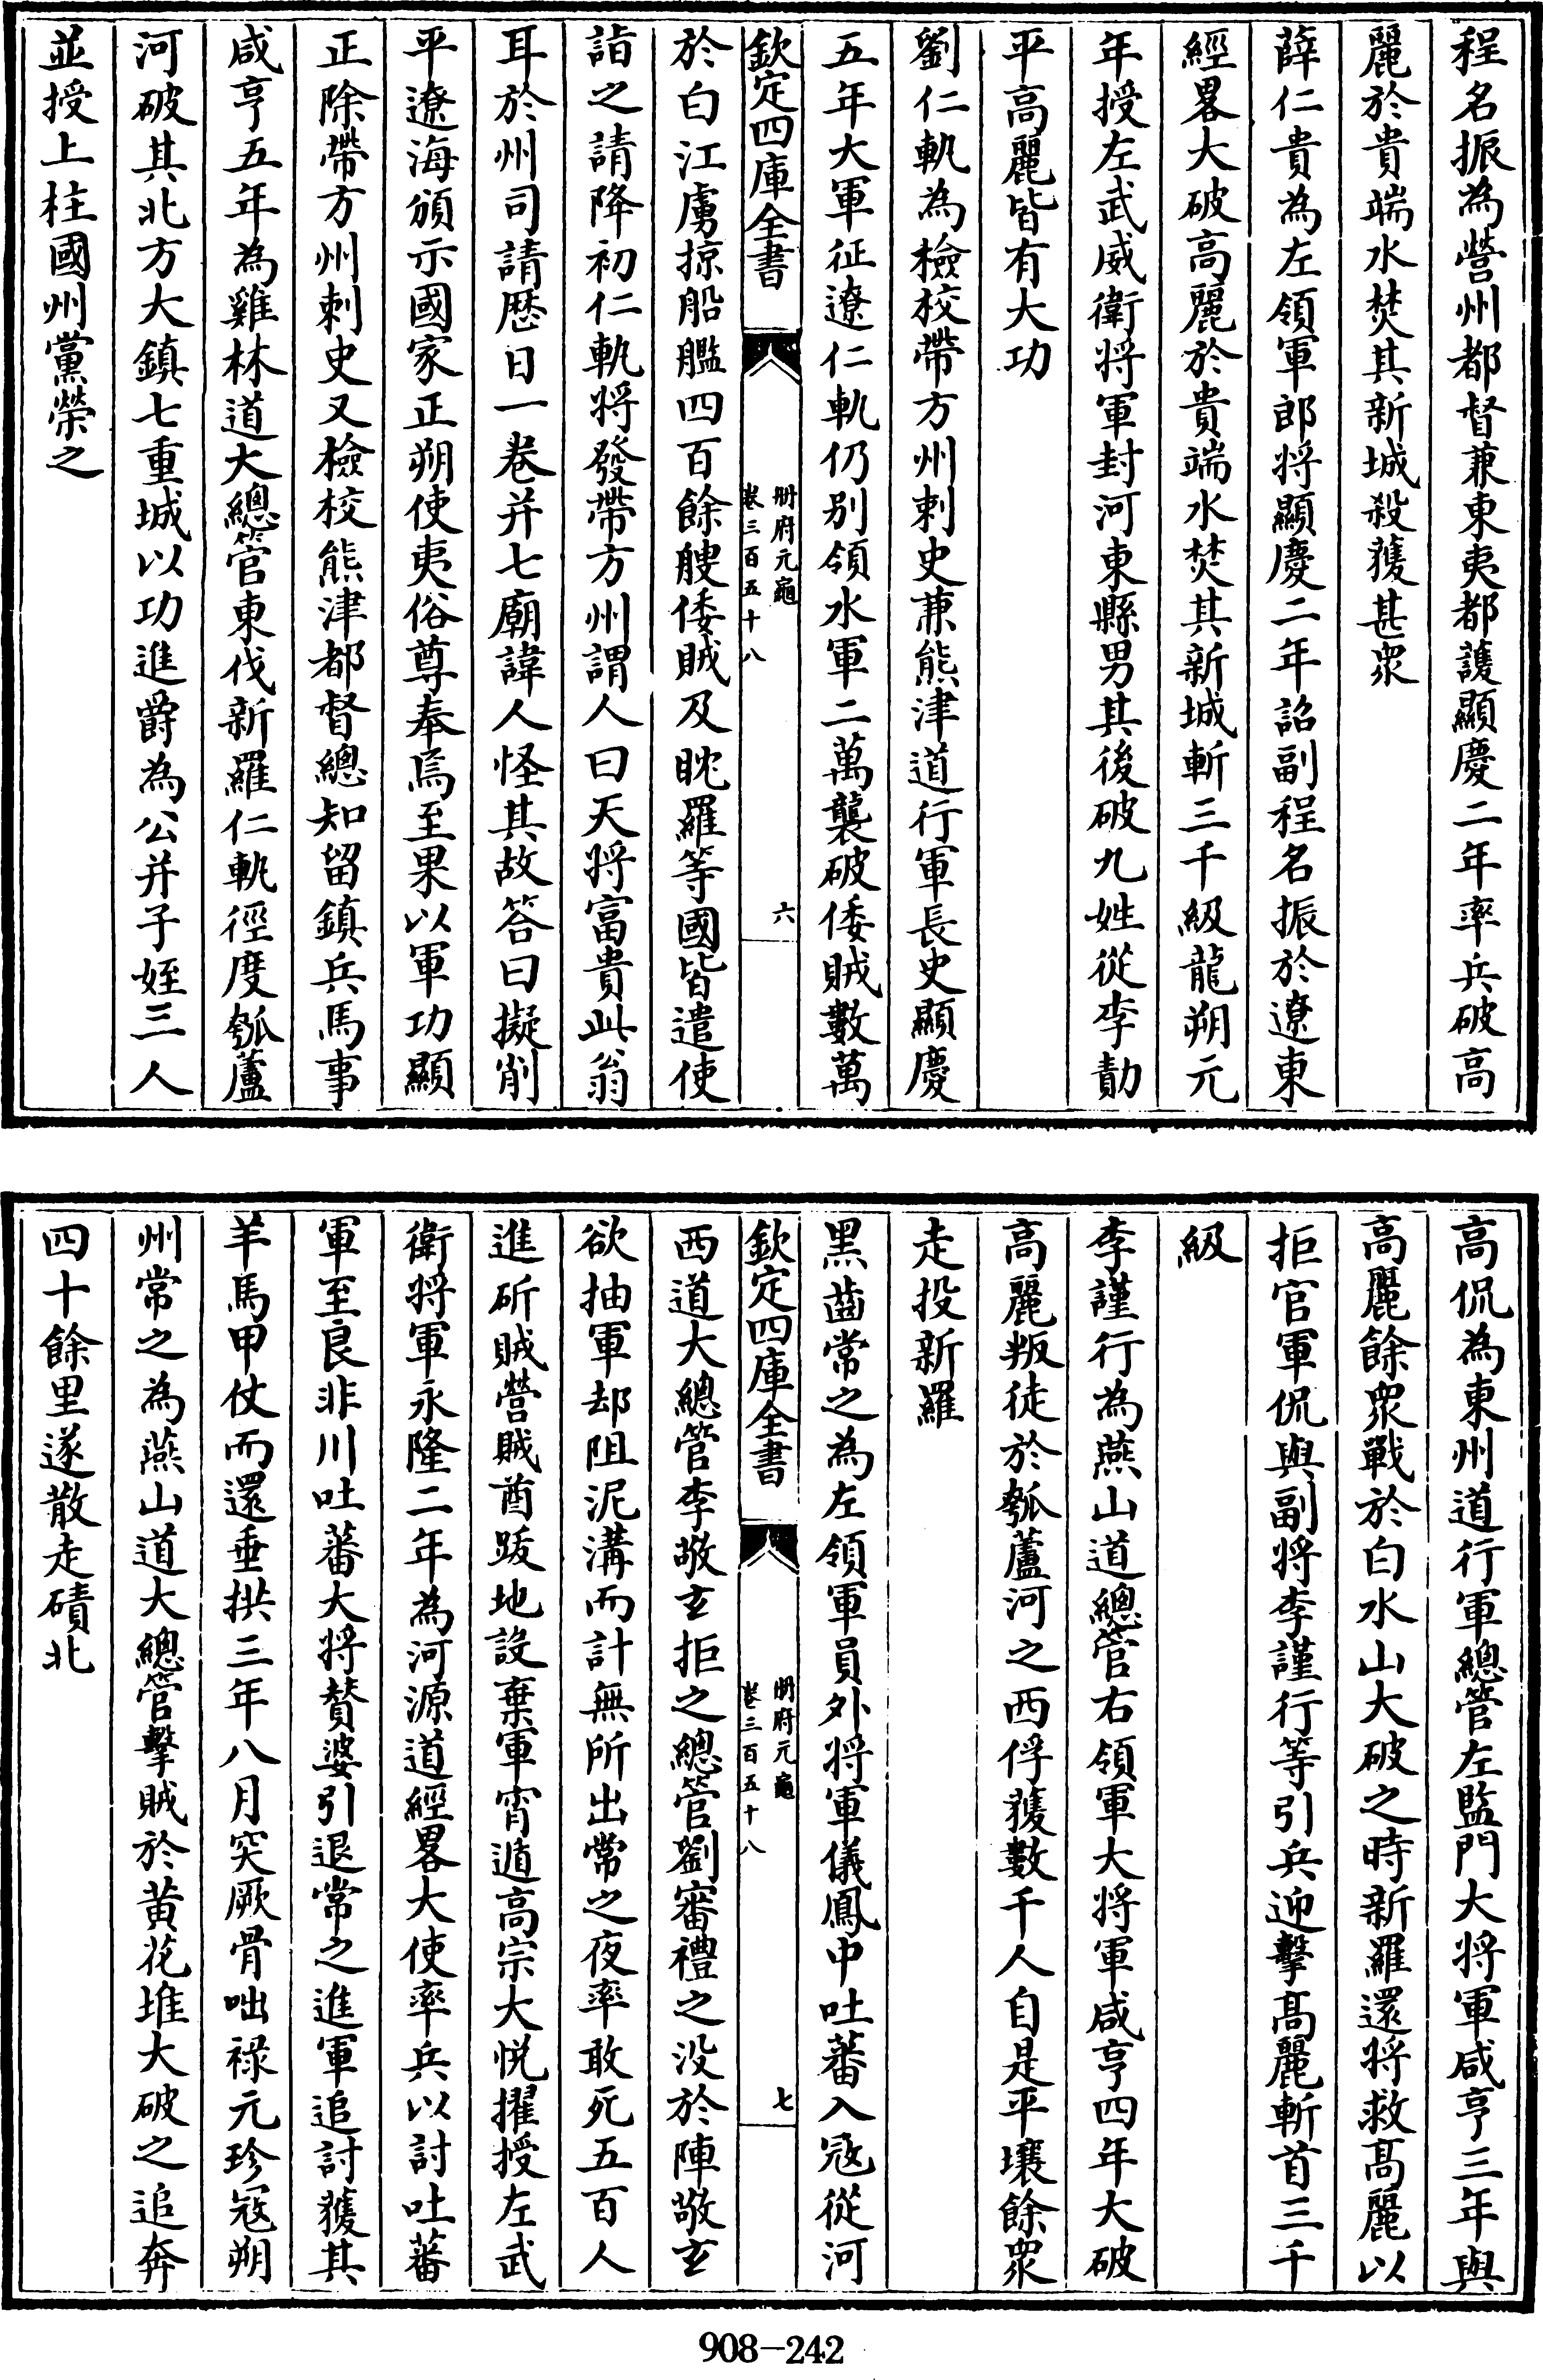 程名振為營州都督兼東夷都護顯慶二年率兵破高
麗於貴端水焚其新城殺獲甚衆
薛仁貴為左領軍郎將顯慶二年詔副程名振於遼東
經畧大破高麗於貴端水焚其新城斬三千級龍朔元
年授左武威衛將軍封河東縣男其後破九姓從李勣
平高麗皆有大功
劉仁軌為檢校帶方州刺史兼熊津道行軍長史顯慶
五年大軍征遼仁軌仍别領水軍二萬襲破倭賊數萬
欽定四庫全書
册府元龜
卷三百五十八
六
於白江虜掠船艦四百餘艘倭賊及眈羅等國皆遣使
詣之請降初仁軌將發帶方州謂人曰天將富貴此翁
耳於州司請厯日一卷并七廟諱人怪其故答曰擬削
平遼海頒示國家正朔使夷俗尊奉焉至果以軍功顯
正除帶方州刺史又檢校熊津都督總知留鎮兵馬事
咸亨五年為雞林道大總管東伐新羅仁軌徑度瓠蘆
河破其北方大鎮七重城以功進爵為公并子姪三人
並授上柱國州黨榮之
高侃為東州道行軍總管左監門大將軍咸亨三年與
高麗餘衆戰於白水山大破之時新羅還將救高麗以
拒官軍侃與副將李謹行等引兵迎擊高麗斬首三千
級
李謹行為燕山道總管右領軍大將軍咸亨四年大破
高麗叛徒於瓠蘆河之西俘獲數千人自是平壤餘衆
走投新羅
黑齒常之為左領軍員外將軍儀鳳中吐蕃入寇從河
欽定四庫全書
册府元龜
卷三百五十八
七
西道大總管李敬玄拒之總管劉審禮之没於陣敬玄
欲抽軍却阻泥溝而計無所出常之夜率敢死五百人
進斫賊營賊酋跋地設棄軍宵遁高宗大悦擢授左武
衛將軍永隆二年為河源道經畧大使率兵以討吐蕃
軍至良非川吐蕃大將賛婆引退常之進軍追討獲其
羊馬甲仗而還垂拱三年八月突厥骨咄禄元珍寇朔
州常之為燕山道大總管擊賊於黄花堆大破之追奔
四十餘里遂散走磧北
908-242